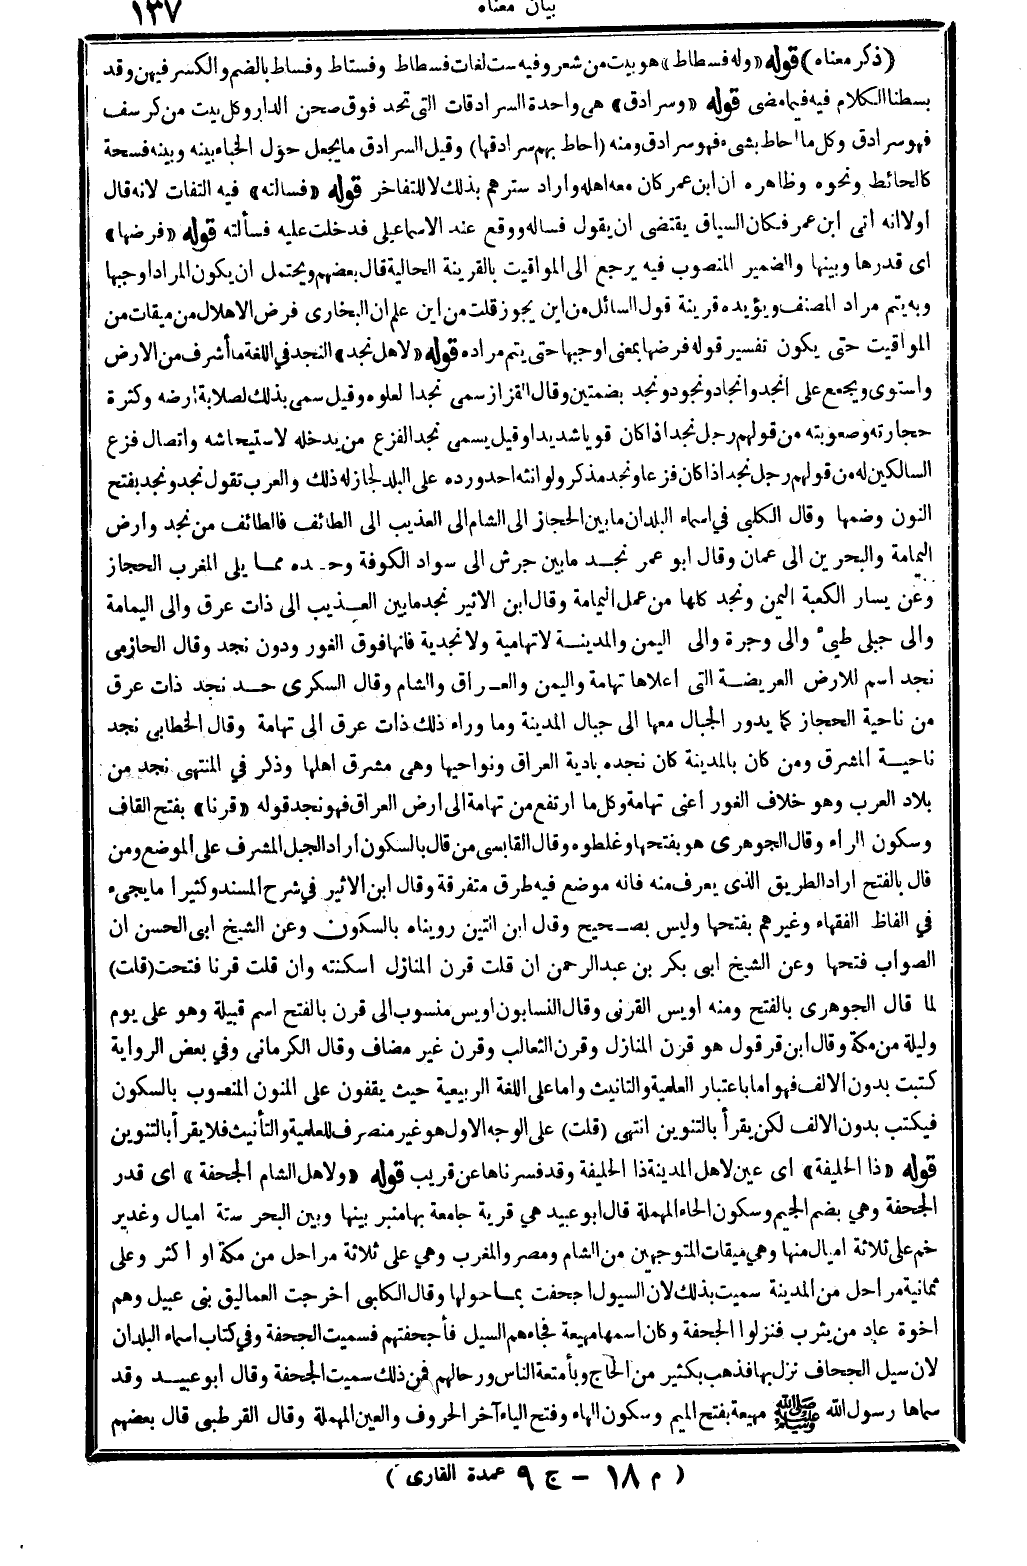 بيان معناه
١٣٧
(ذكر معناه) قوله «وله فسطاط» هو بيت من شعر وفيه ست لغات فسطاط وفستاط وفساط بالضم والكسر فيهن وقد
بسطنا الكلام فيه فيما مضى قوله «وسرادق» هى واحدة السرادقات التى تحد فوق صحن الدار وكل بيت من كرسف
فهو سرادق وكل ما احاط بشىء فهو سرادق ومنه (احاط بهم سرادقها) وقيل السرادق ما يجعل حول الخباء بينه وبينه فسحة
كالحائط ونحوه وظاهره ان ابن عمر كان معه اهله واراد سترهم بذلك لا للتفاخر قوله «فسالته» فيه التفات لانه قال
اولا انه اتى ابن عمر فكان السياق يقتضى ان يقول فساله ووقع عند الاسماعيلى فدخلت عليه فسألته قوله «فرضها»
اى قدرها وبينها والضمير المنصوب فيه يرجع الى المواقيت بالقرينة الحالية قال بعضهم ويحتمل ان يكون المراد اوجبها
وبه يتم مراد المصنف ويؤيده قرينة قول السائل من اين يجوز قلت من اين علم ان البخارى فرض الاهلال من ميقات من
المواقيت حتى يكون تفسير قوله فرضها بمعنى اوجبها حتى يتم مراده قوله «لاهل نجد» النجد في اللغة ما أشرف من الارض
واستوى ويجمع على انجد وانجاد ونجود ونجد بضمتين وقال القزاز سمى نجدا لعلوه وقيل سمى بذلك لصلابة ارضه وكثرة
حجارته وصعوبته من قولهم رجل نجد اذا كان قويا شديدا وقيل يسمى نجد الفزع من يدخله لاستيحاشه واتصال فزع
السالكين له من قولهم رجل نجد اذا كان فزعا ونجد مذكر ولو انثه احد ورده على البلد لجاز له ذلك والعرب تقول نجد ونجد بفتح
النون وضمها وقال الكلبي في اسماء البلدان ما بين الحجاز الى الشام الى العذيب الى الطائف فالطائف من نجد وارض
اليمامة والبحرين الى عمان وقال ابو عمر نجد ما بين جرش الى سواد الكوفة وحده مما يلى المغرب الحجاز
وعن يسار الكعبة اليمن ونجد كلها من عمل اليمامة وقال ابن الاثير نجد ما بين العذيب الى ذات عرق والى اليمامة
والى جبلى طيىء والى وجرة والى اليمن والمدينة لا تهامية ولا نجدية فانها فوق الغور ودون نجد وقال الحازمى
نجد اسم للارض العريضة التى اعلاها تهامة واليمن والعراق والشام وقال السكرى حد نجد ذات عرق
من ناحية الحجاز كما يدور الجبال معها الى جبال المدينة وما وراء ذلك ذات عرق الى تهامة وقال الخطابى نجد
ناحية المشرق ومن كان بالمدينة كان نجده بادية العراق ونواحيها وهى مشرق اهلها وذكر في المنتهى نجد من
بلاد العرب وهو خلاف الغور اعنى تهامة وكل ما ارتفع من تهامة الى ارض العراق فهو نجد قوله «قرنا» بفتح القاف
وسكون الراء وقال الجوهرى هو بفتحها وغلطوه وقال القابسى من قال بالسكون اراد الجبل المشرف على الموضع ومن
قال بالفتح اراد الطريق الذى يعرف منه فانه موضع فيه طرق متفرقة وقال ابن الاثير في شرح المسند وكثيرا ما يجىء
في الفاظ الفقهاء وغيرهم بفتحها وليس بصحيح وقال ابن التين رويناه بالسكون وعن الشيخ ابى الحسن ان
الصواب فتحها وعن الشيخ ابى بكر بن عبد الرحمن ان قلت قرن المنازل اسكنته وان قلت قرنا فتحت (قلت)
لما قال الجوهرى بالفتح ومنه اويس القرنى وقال النسابون اويس منسوب الى قرن بالفتح اسم قبيلة وهو على يوم
وليلة من مكة وقال ابن قرقول هو قرن المنازل وقرن الثعالب وقرن غير مضاف وقال الكرمانى وفي بعض الرواية
كتبت بدون الالف فهو اما باعتبار العلمية والتانيث واما على اللغة الربيعية حيث يقفون على المنون المنصوب بالسكون
فيكتب بدون الالف لكن يقرأ بالتنوين انتهى (قلت) على الوجه الاول هو غير منصرف للعلمية والتأنيث فلا يقرأ بالتنوين
قوله «ذا الحليفة» اى عين لاهل المدينة ذا الحليفة وقد فسرناها عن قريب قوله «ولاهل الشام الجحفة» اى قدر
الجحفة وهي بضم الجيم وسكون الحاء المهملة قال ابو عبيد هي قرية جامعة بها منبر بينها وبين البحر ستة اميال وغدير
خم على ثلاثة اميال منها وهي ميقات المتوجهين من الشام ومصر والمغرب وهي على ثلاثة مراحل من مكة او أكثر وعلى
ثمانية مراحل من المدينة سميت بذلك لان السيول اجحفت بما حولها وقال الكلبى اخرجت العماليق بنى عبيل وهم
اخوة عاد من يثرب فنزلوا الجحفة وكان اسمها مهيعة فجاءهم السيل فأجحفتهم فسميت الجحفة وفي كتاب اسماء البلدان
لان سيل الجحاف نزل بها فذهب بكثير من الحاج وبأمتعة الناس ورحالهم فمن ذلك سميت الجحفة وقال ابو عبيد وقد
سماها رسول الله ﷺ مهيعة بفتح الميم وسكون الهاء وفتح الياء آخر الحروف والعين المهملة وقال القرطبى قال بعضهم
(م ١٨ – ج ٩ عمدة القارى)